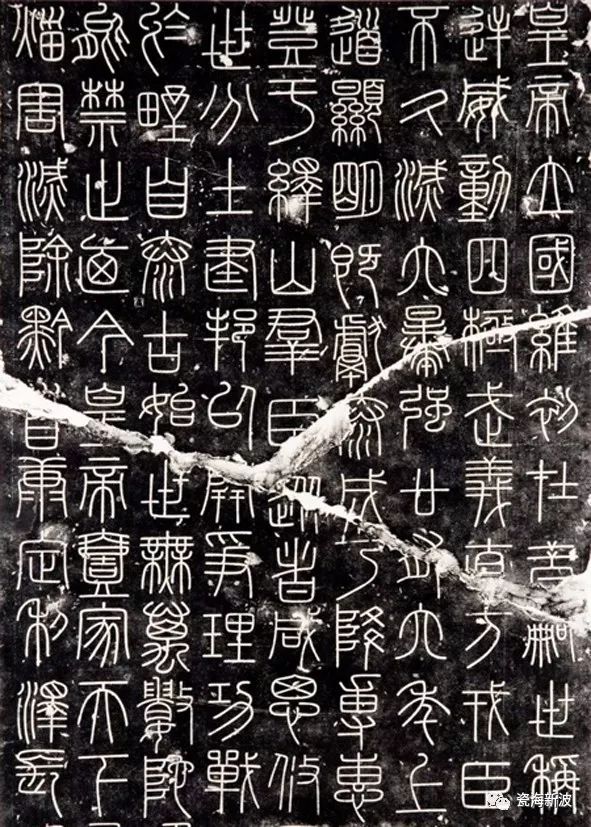 皇帝立國維初在昔嗣世稱
逆威動四極武義直方戎臣
不久滅六暴強廿有六年上
道顯明既獻泰成乃降專惠
登于繹山羣臣從者咸思攸
世分土建邦以開爭理功戰
於野自泰古始世無萬數陀
能禁止廼今皇帝壹家天下
烖害滅除黔首康定利澤長
瓷海新波